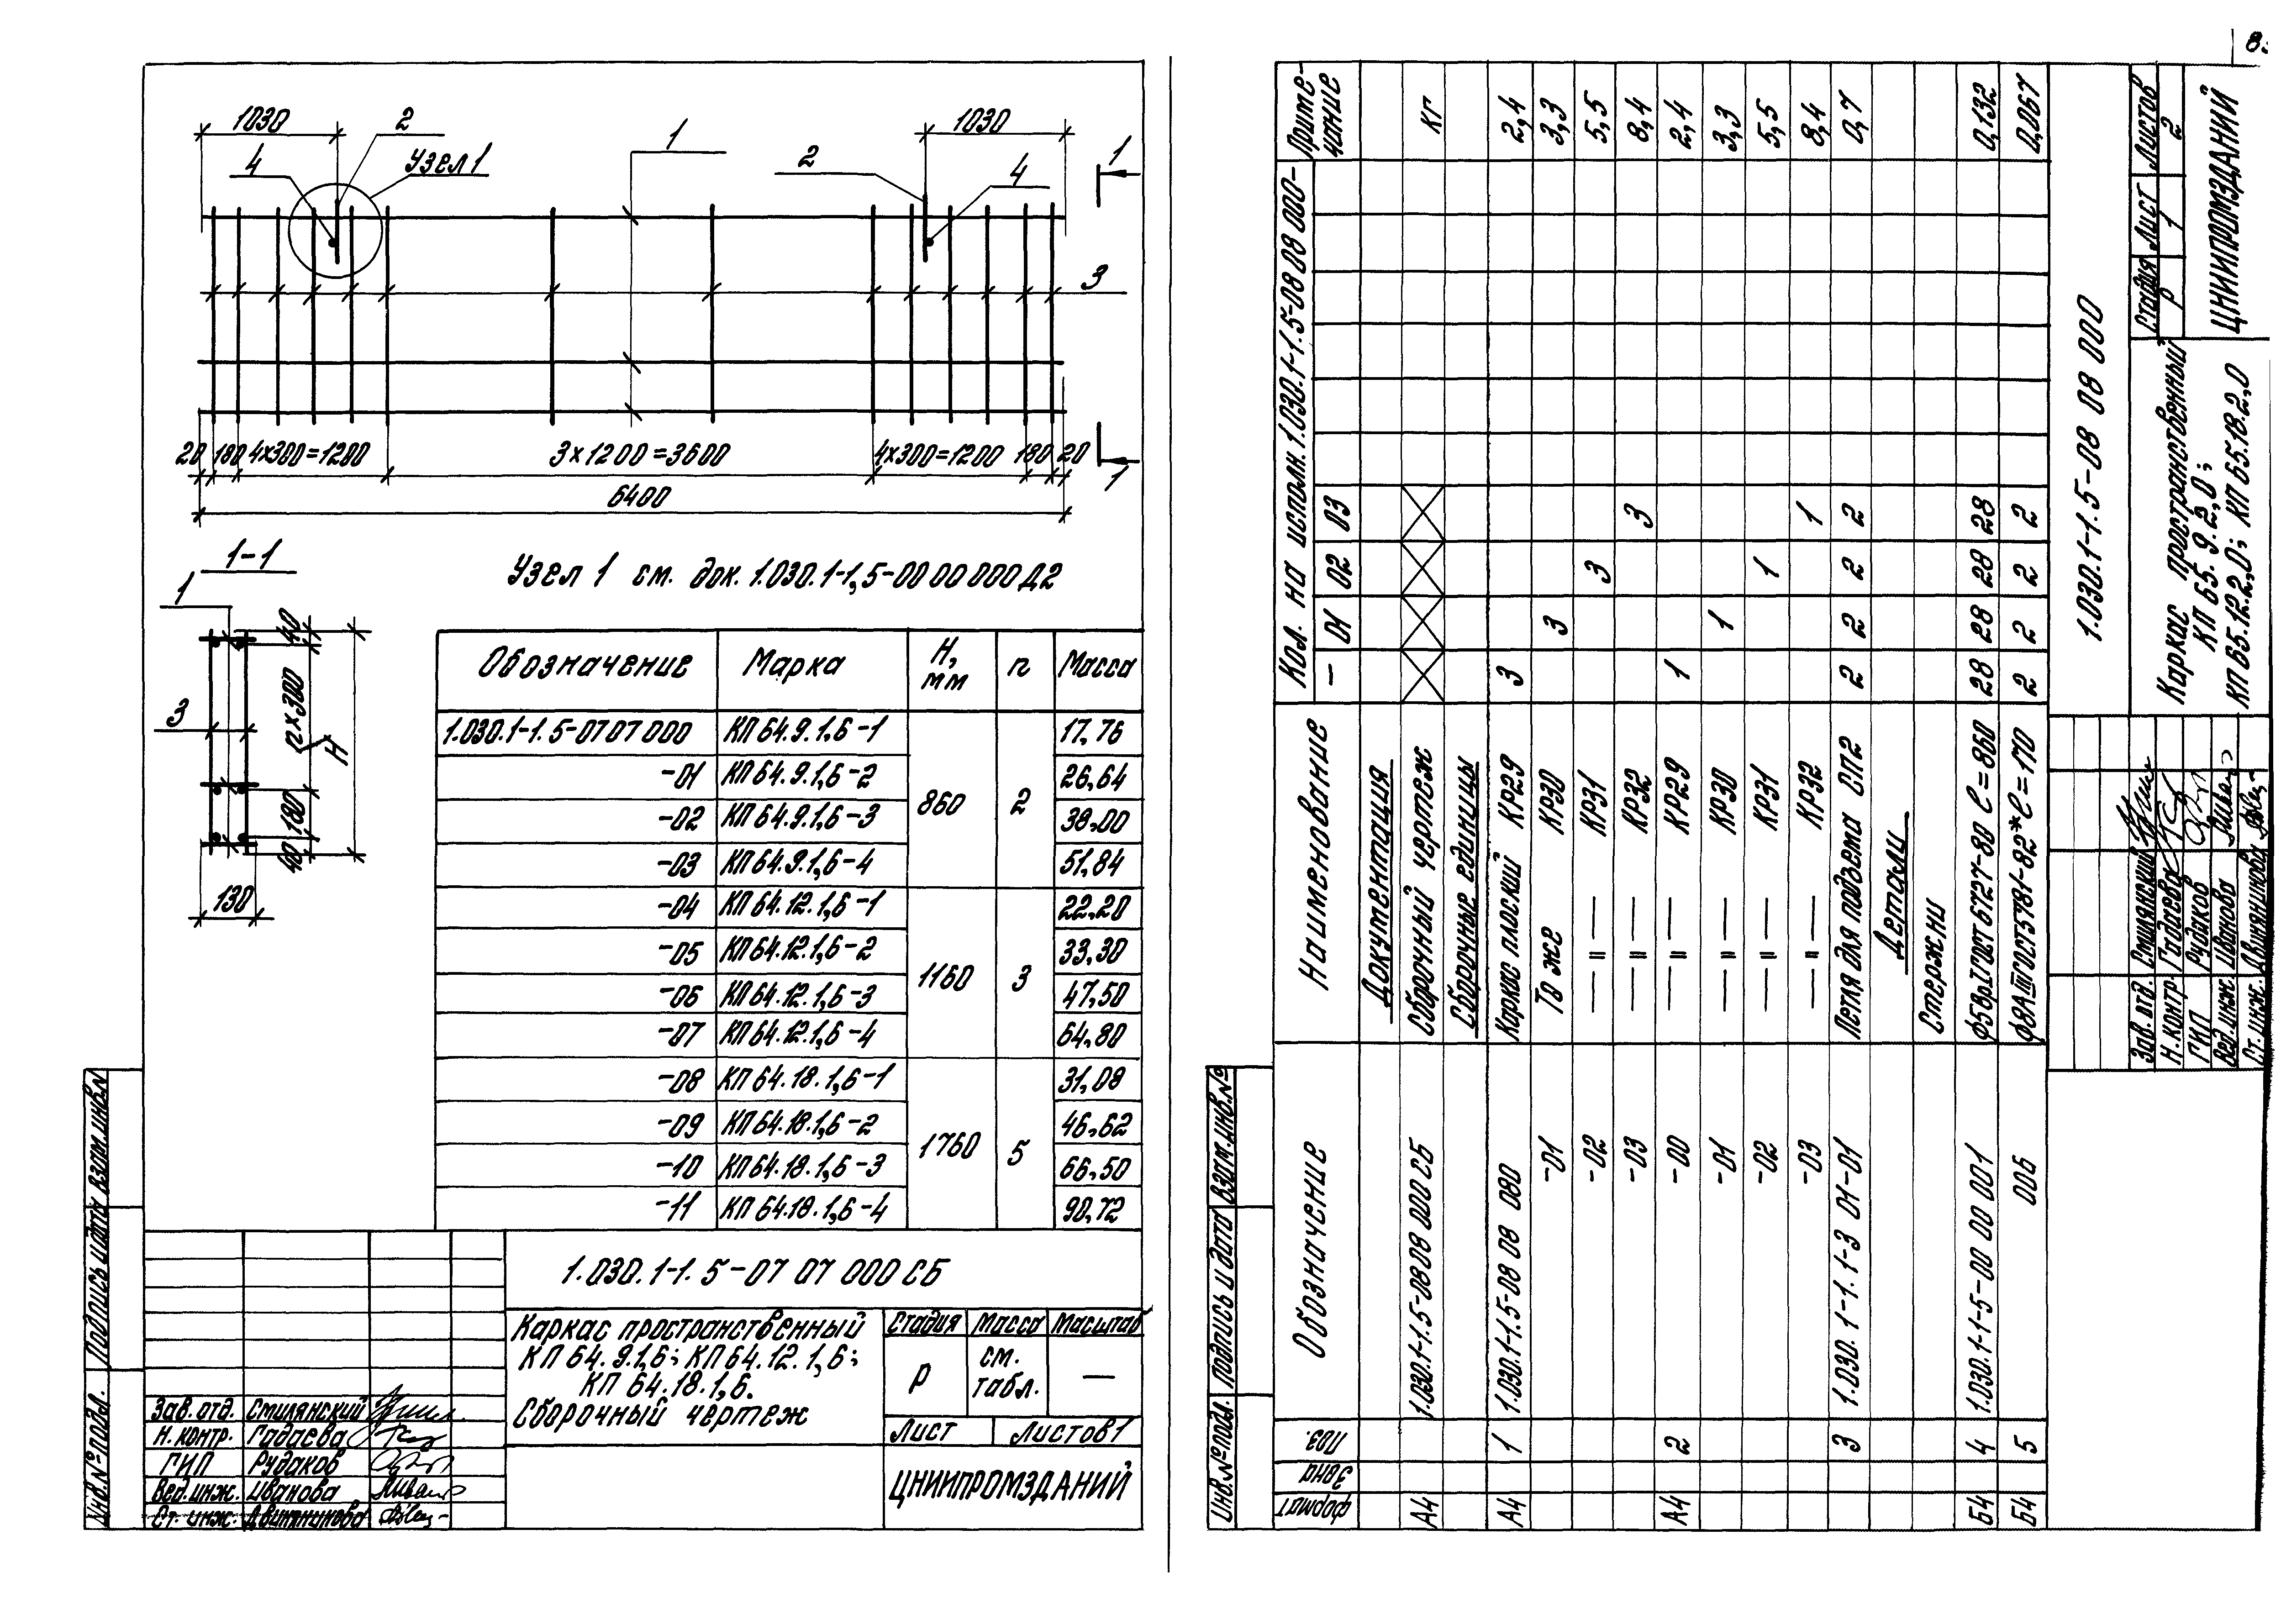 1030
2
1
1030
4
Узел 1
2
4
1
3
20 180 4х300=1200
3х1200=3600
4х300=1200 180 20
6400
1
1-1
Узел 1 см. док. 1.030.1-1,5-00 00 000 Д2
1
40
3
n×300
H
180
40
130
Обозначение Марка Н, мм n Масса
1.030.1-1.5-07 07 000 КП 64.9.1,6-1 17,76
-01 КП 64.9.1,6-2 26,64
860 2
-02 КП 64.9.1,6-3 38,00
-03 КП 64.9.1,6-4 51,84
-04 КП 64.12.1,6-1 22,20
-05 КП 64.12.1,6-2 33,30
1160 3
-06 КП 64.12.1,6-3 47,50
-07 КП 64.12.1,6-4 64,80
-08 КП 64.18.1,6-1 31,08
-09 КП 64.18.1,6-2 46,62
1760 5
-10 КП 64.18.1,6-3 66,50
-11 КП 64.18.1,6-4 90,72
1.030.1-1.5-07 07 000 СБ
Каркас пространственный
КП 64.9.1,6; КП 64.12.1,6;
КП 64.18.1,6.
Сборочный чертеж
Стадия Масса Масштаб
Р см. табл. —
Лист Листов 1
ЦНИИПРОМЗДАНИЙ
Зав. отд. Смилянский
Н. контр. Гадаева
ГИП Рудаков
Вед. инж. Иванова
Ст. инж. Двинянинова
Инв. № подл. Подпись и дата Взам. инв. №
8
Формат Зона Поз. Обозначение Наименование Кол. на исполн. 1.030.1-1.5-08 08 000- Примечание
- 01 02 03
Документация
А4 1.030.1-1.5-08 08 000 СБ Сборочный чертеж кг
Сборочные единицы
А4 1 1.030.1-1.5-08 08 080 Каркас плоский КР29 3 2,4
-01 То же КР30 3 3,3
-02 —"— КР31 3 5,5
-03 —"— КР32 3 8,4
А4 2 -00 —"— КР29 1 2,4
-01 —"— КР30 1 3,3
-02 —"— КР31 1 5,5
-03 —"— КР32 1 8,4
3 1.030.1-1.1-3 01-01 Петля для подъема СП2 2 2 2 2 0,7
Детали
Стержни
Б4 4 1.030.1-1-5-00 00 001 ф5ВрI ГОСТ 6727-80 ℓ=860 28 28 28 28 0,132
Б4 5 006 ф8АIII ГОСТ 5781-82* ℓ=170 2 2 2 2 0,067
1.030.1-1.5-08 08 000
Каркас пространственный
КП 65.9.2,0;
КП 65.12.2,0; КП 65.18.2,0
Стадия Лист Листов
Р 1 2
ЦНИИПРОМЗДАНИЙ
Зав. отд. Смилянский
Н. контр. Гадаева
ГИП Рудаков
Вед. инж. Иванова
Ст. инж. Двинянинова
Инв. № подл. Подпись и дата Взам. инв. №